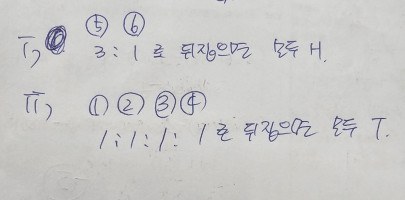 ⑤ ⑥
I, 3 : 1 로 뒤집으면 모두 H.
II, ① ② ③ ④
1 : 1 : 1 : 1 로 뒤집으면 모두 T.